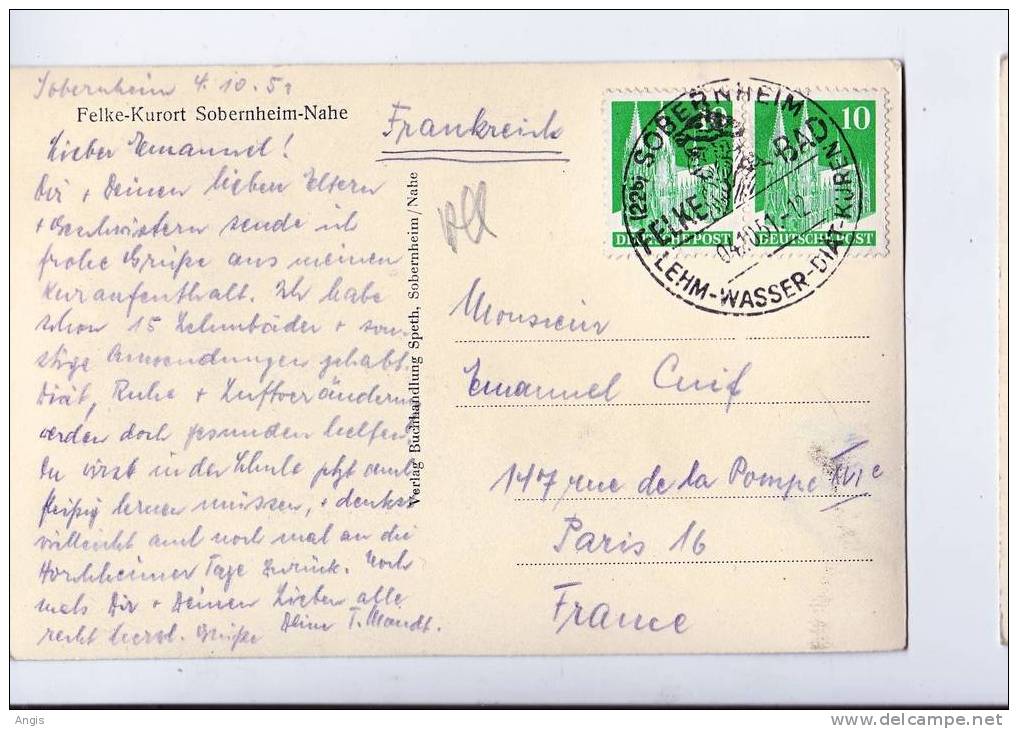 Sobernheim 4.10.51
Felke-Kurort Sobernheim-Nahe
Lieber Emanuel!
Dir + Deinen lieben Eltern
+ Geschwistern sende ich
frohe Grüße aus meinem
Kuraufenthalt. Ich habe
schon 15 Lehmbäder + son-
stige Anwendungen gehabt.
Diät, Ruhe + Luftveränderung
werden doch gesunden helfen.
Du wirst in der Schule jetzt auch
fleißig lernen müssen, + denkst
vielleicht auch noch mal an die
Horchheimer Tage zurück. Noch
mals Dir + Deinen Lieben alle
recht herzl. Grüße Deine T. Mandt.
Verlag Buchhandlung Speth, Sobernheim/Nahe
Frankreich
10
10
DEUTSCHE POST
DEUTSCHE POST
(22b) SOBERNHEIM
FELKE-BAD
04.10.51.-12
LEHM-WASSER-DIÄT-KUREN
Monsieur
Emanuel Cuif
147 rue de la Pompe XVIe
Paris 16
France
Angis
www.delcampe.net